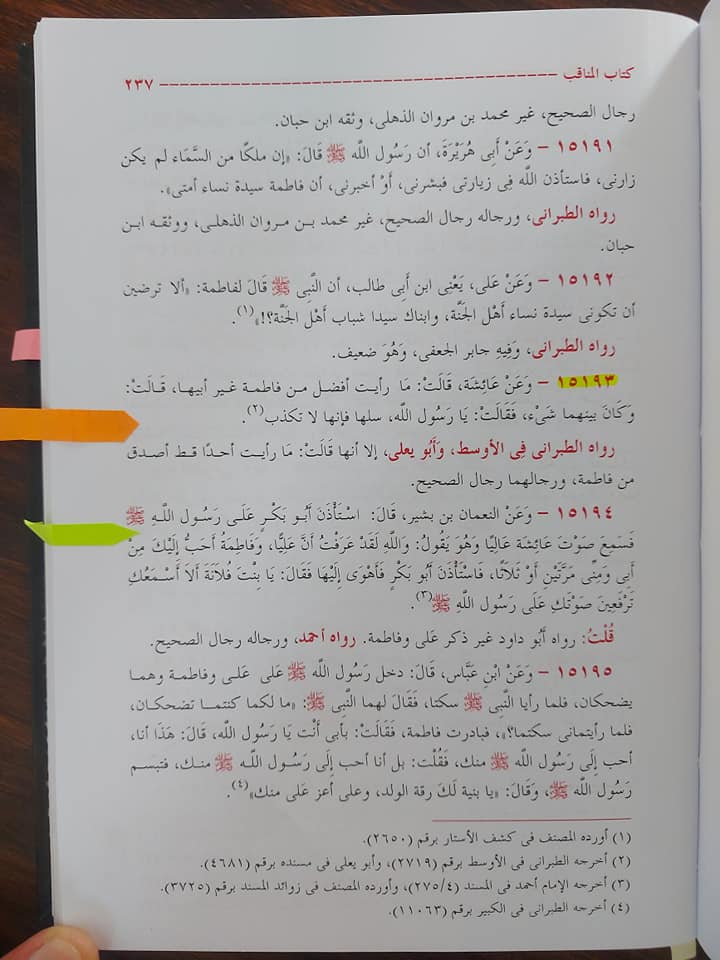 كتاب المناقب ------------------------------------------ ٢٣٧
رجال الصحيح، غير محمد بن مروان الذهلى، وثقه ابن حبان.
١٥١٩١ – وَعَنْ أَبِى هُرَيْرَةَ، أن رَسُول اللَّه ﷺ قَالَ: «إن ملكًا من السَّمَاء لم يكن
زارنى، فاستأذن اللَّه فِى زيارتى فبشرنى، أَوْ أخبرنى، أن فاطمة سيدة نساء أمتى».
رواه الطبرانى، ورجاله رجال الصحيح، غير محمد بن مروان الذهلى، ووثقه ابن
حبان.
١٥١٩٢ – وَعَنْ على، يَعْنِى ابن أَبِى طالب، أن النَّبِى ﷺ قَالَ لفاطمة: «ألا ترضين
أن تكونى سيدة نساء أَهْل الجَنَّة، وابناك سيدا شباب أَهْل الجَنَّة؟!»(١).
رواه الطبرانى، وَفِيهِ جابر الجعفى، وَهُوَ ضعيف.
١٥١٩٣ – وَعَنْ عَائِشَة، قَالَتْ: مَا رأيت أفضل من فاطمة غير أبيها، قَالَتْ:
وَكَانَ بينهما شَىْء، فَقَالَتْ: يَا رَسُول اللَّه، سلها فإنها لا تكذب(٢).
رواه الطبرانى فِى الأوسط، وَأَبُو يعلى، إلا أنها قَالَتْ: مَا رأيت أحدًا قط أصدق
من فاطمة، ورجالهما رجال الصحيح.
١٥١٩٤ – وَعَنْ النعمان بن بشير، قَالَ: اسْتَأْذَنَ أَبُو بَكْرٍ عَلَى رَسُولِ اللَّهِ ﷺ
فَسَمِعَ صَوْتَ عَائِشَةَ عَالِيًا وَهُوَ يَقُولُ: وَاللَّهِ لَقَدْ عَرَفْتُ أَنَّ عَلِيًّا، وَفَاطِمَةُ أَحَبُّ إِلَيْكَ مِنْ
أَبِى وَمِنِّى مَرَّتَيْنِ أَوْ ثَلاَثًا، فَاسْتَأْذَنَ أَبُو بَكْرٍ فَأَهْوَى إِلَيْهَا فَقَالَ: يَا بِنْتَ فُلاَنَةَ أَلاَ أَسْمَعُكِ
تَرْفَعِينَ صَوْتَكِ عَلَى رَسُولِ اللَّهِ ﷺ(٣).
قُلْتُ: رواه أَبُو داود غير ذكر عَلى وفاطمة. رواه أحمد، ورجاله رجال الصحيح.
١٥١٩٥ – وَعَنْ ابْنِ عَبَّاس، قَالَ: دخل رَسُول اللَّه ﷺ عَلى عَلى وفاطمة وهما
يضحكان، فلما رأيا النَّبِى ﷺ سكتا، فَقَالَ لهما النَّبِى ﷺ: «ما لكما كنتما تضحكان،
فلما رأيتمانى سكتما؟»، فبادرت فاطمة، فَقَالَتْ: بأبى أَنْت يَا رَسُول اللَّه، قَالَ: هَذَا أنا،
أحب إِلَى رَسُول اللَّه ﷺ منك، فَقُلْت: بل أنا أحب إِلَى رَسُول اللَّه ﷺ منك، فتبسم
رَسُول اللَّه ﷺ، وَقَالَ: «يا بنية لَكَ رقة الولد، وعلى أعز عَلى منك»(٤).
(١) أورده المصنف فى كشف الأستار برقم (٢٦٥٠).
(٢) أخرجه الطبرانى فى الأوسط برقم (٢٧١٩)، وأبو يعلى فى مسنده برقم (٤٦٨١).
(٣) أخرجه الإمام أحمد فى المسند (٢٧٥/٤)، وأورده المصنف فى زوائد المسند برقم (٣٧٢٥).
(٤) أخرجه الطبرانى فى الكبير برقم (١١٠٦٣).